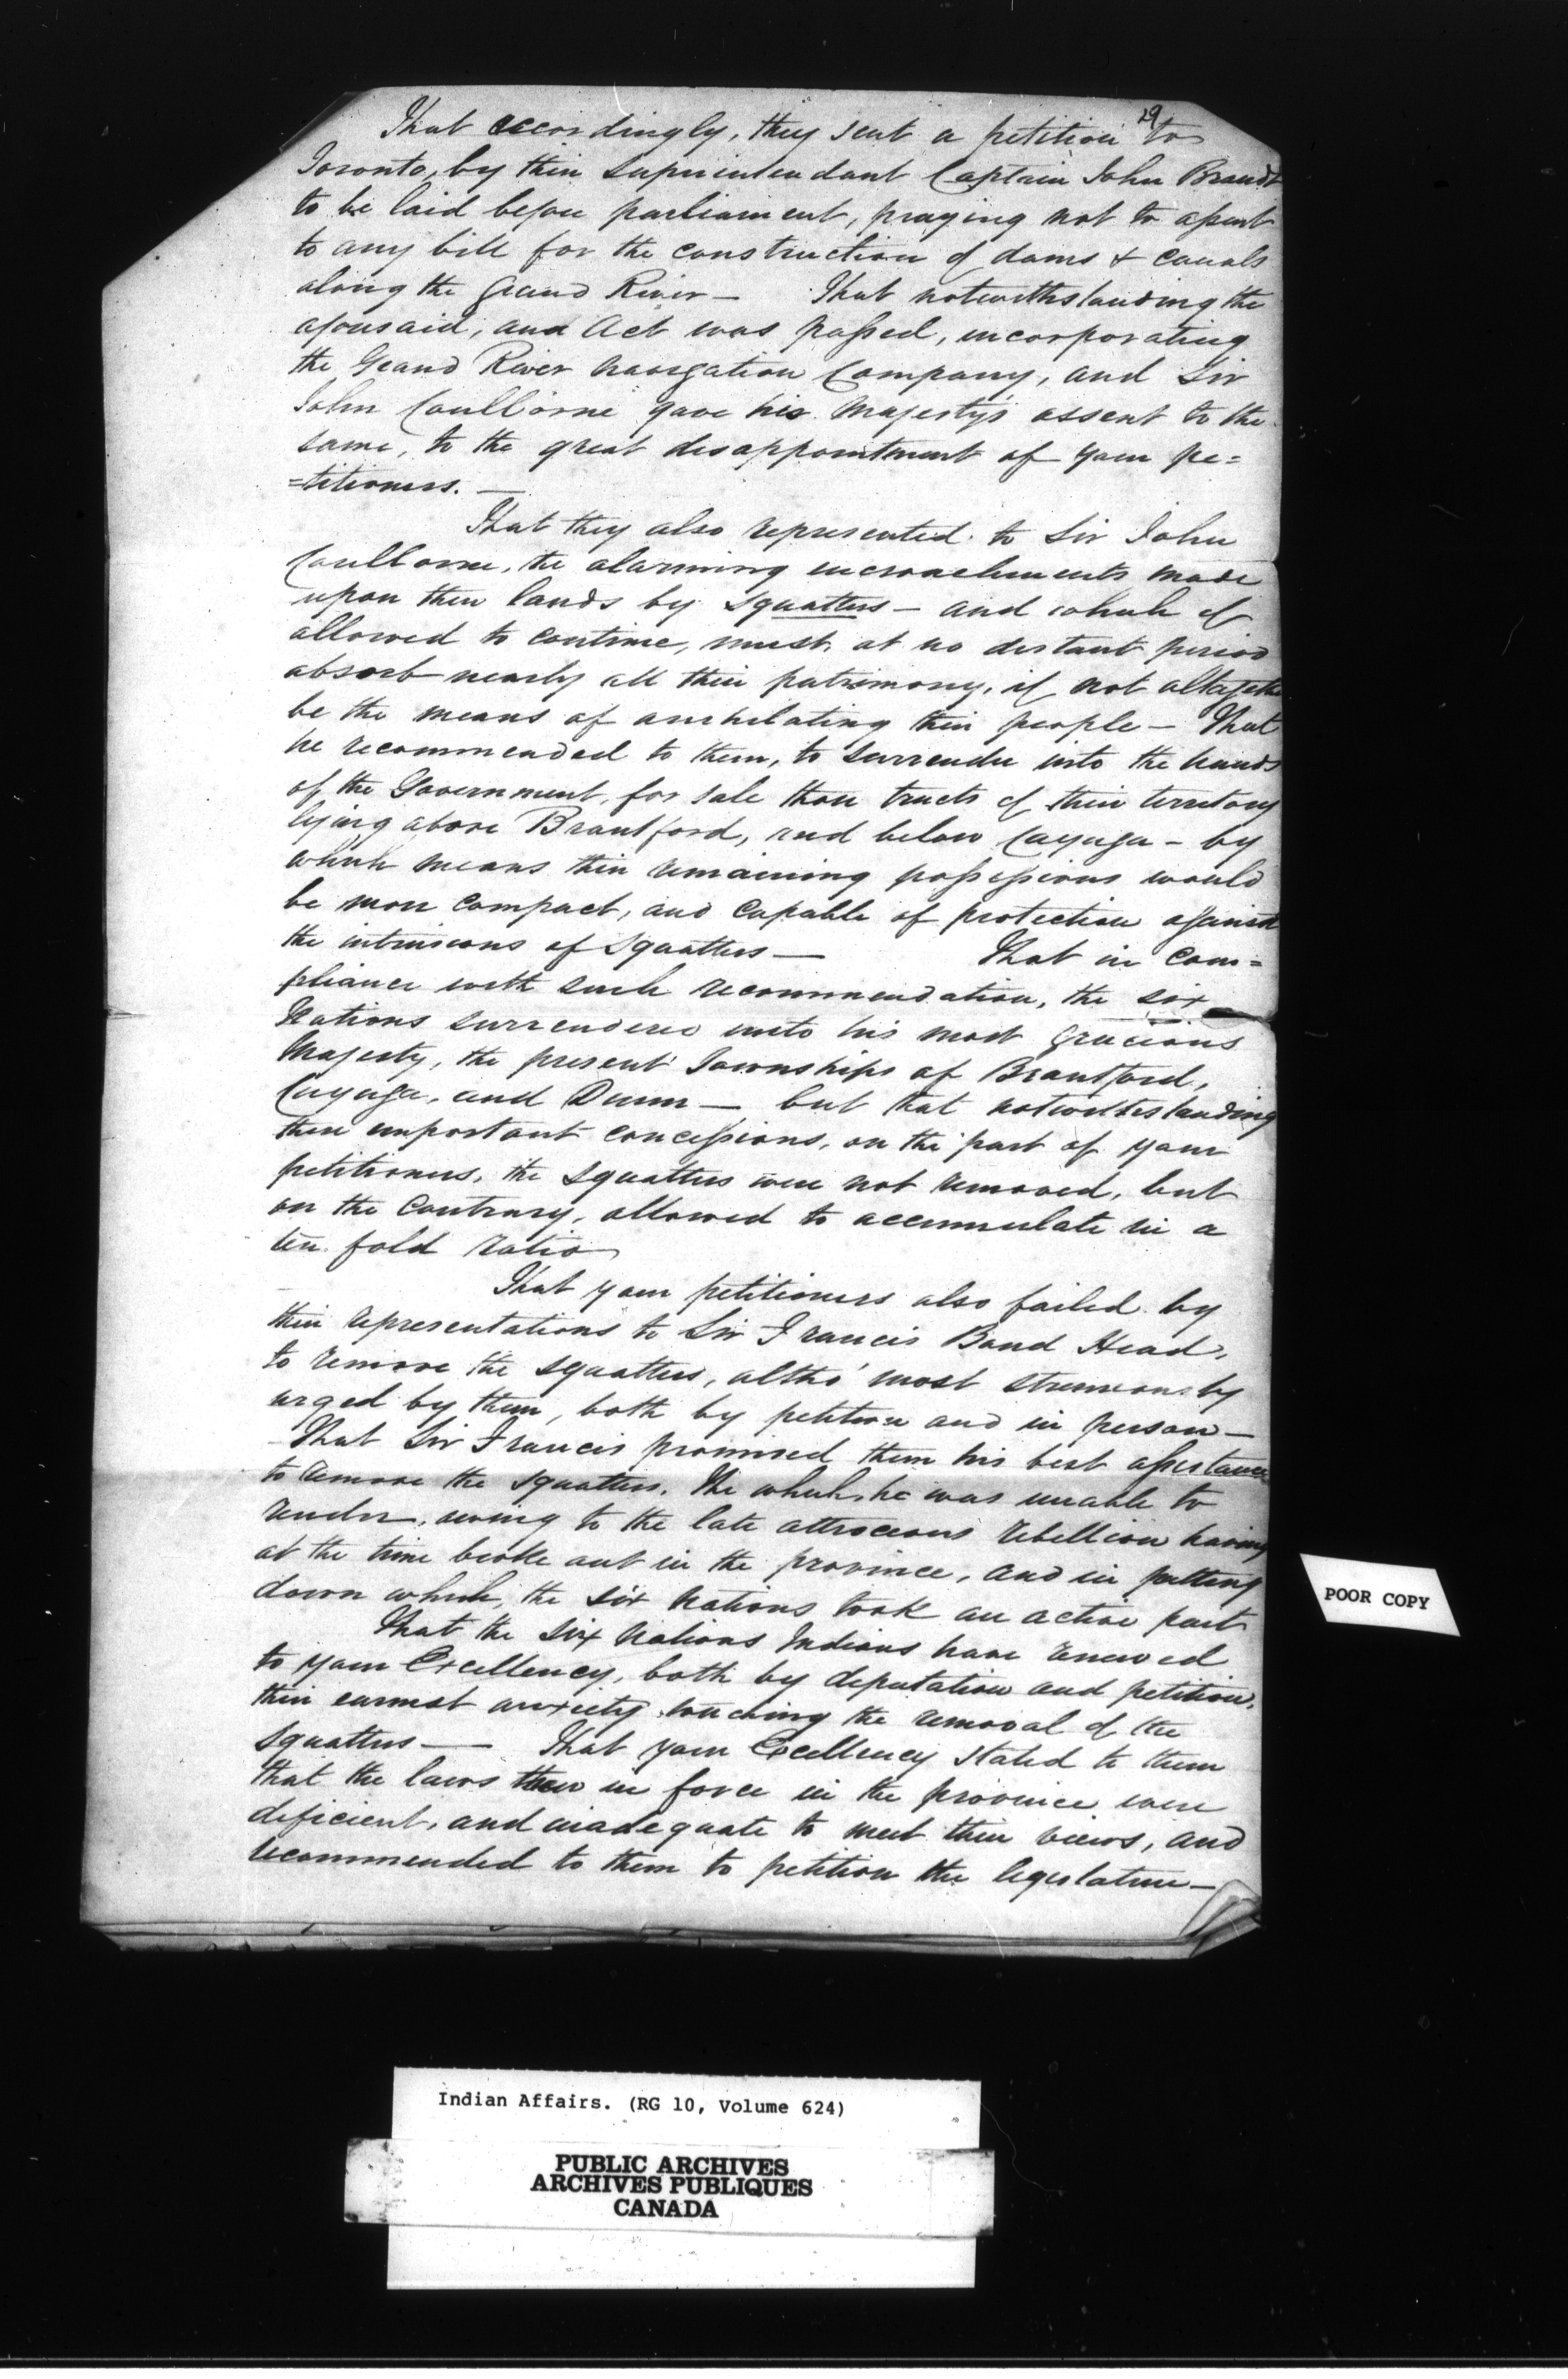 29
That accordingly, they sent a petition to
Toronto, by their Superintendant Captain John Brandt
to be laid before parliament, praying not to assent
to any bill for the construction of dams & canals
along the Grand River — That notwithstanding the
aforesaid, an Act was passed, incorporating
the Grand River Navigation Company, and Sir
John Coullorne gave his Majesty's assent to the
same, to the great disappointment of your pe=
=titioners. —
That they also represented to Sir John
Coullorne, the alarming encroachments made
upon their lands by squatters — and which if
allowed to continue, must, at no distant period
absorb nearly all their patrimony, if not altogether
be the means of anihilating their people — That
he recommended to them, to surrender into the hands
of the Government, for sale those tracts of their territory
lying above Brantford, and below Cayuga — by
which means their remaining possessions would
be more compact, and capable of protection against
the intrusions of squatters — That in com=
pliance with such recommendation, the six
Nations surrendered unto his most gracious
Majesty, the present Townships of Brantford,
Cayuga, and Dunn — but that notwithstanding
these important concessions, on the part of your
petitioners, the squatters were not removed, but
on the contrary, allowed to accumulate in a
ten fold ratio
That your petitioners also failed by
their representations to Sir Francis Bond Head,
to remove the squatters, altho' most strenuously
urged by them, both by petition and in person —
That Sir Francis promised them his best assistance
to remove the squatters. The which, he was unable to
render, owing to the late attrocious rebellion having
at the time broke out in the province, and in putting
down which, the six Nations took an active part
That the Six Nations Indians have renewed
to your Excellency, both by deputation and petition,
their earnest anxiety touching the removal of the
squatters — That your Excellency stated to them
that the laws then in force in the province were
deficient, and inadequate to meet their views, and
recommended to them to petition the legislature —
POOR COPY
Indian Affairs. (RG 10, Volume 624)
PUBLIC ARCHIVES
ARCHIVES PUBLIQUES
CANADA